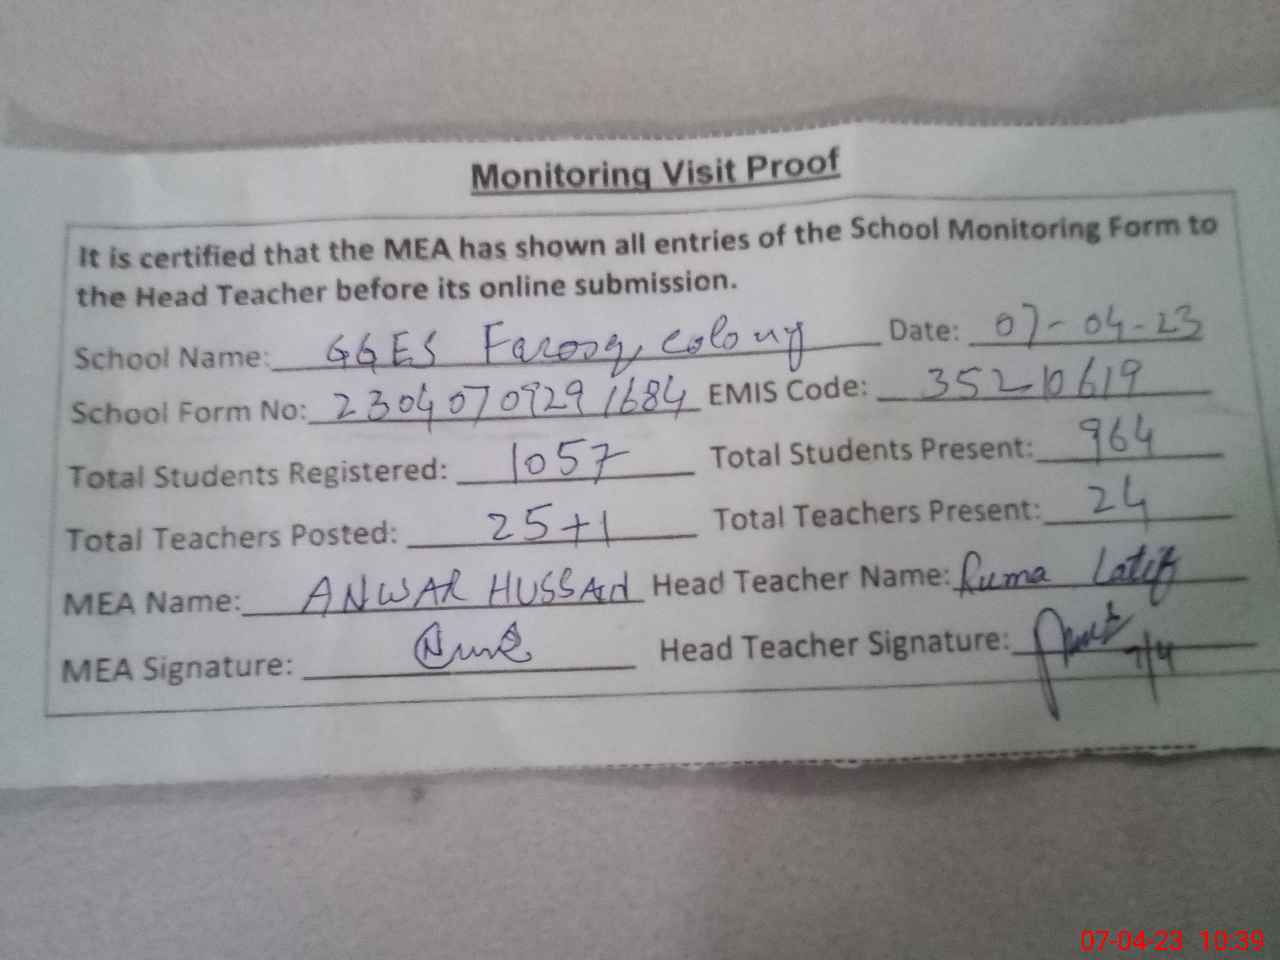 Monitoring Visit Proof
It is certified that the MEA has shown all entries of the School Monitoring Form to
the Head Teacher before its online submission.
School Name: GGES Farooq, colony Date: 07-04-23
School Form No: 23040709291684 EMIS Code: 35210619
Total Students Registered: 1057 Total Students Present: 964
Total Teachers Posted: 25+1 Total Teachers Present: 24
MEA Name: ANWAR HUSSAIN Head Teacher Name: Ruma Latif
MEA Signature: Head Teacher Signature:
7/4
07-04-23 10:39